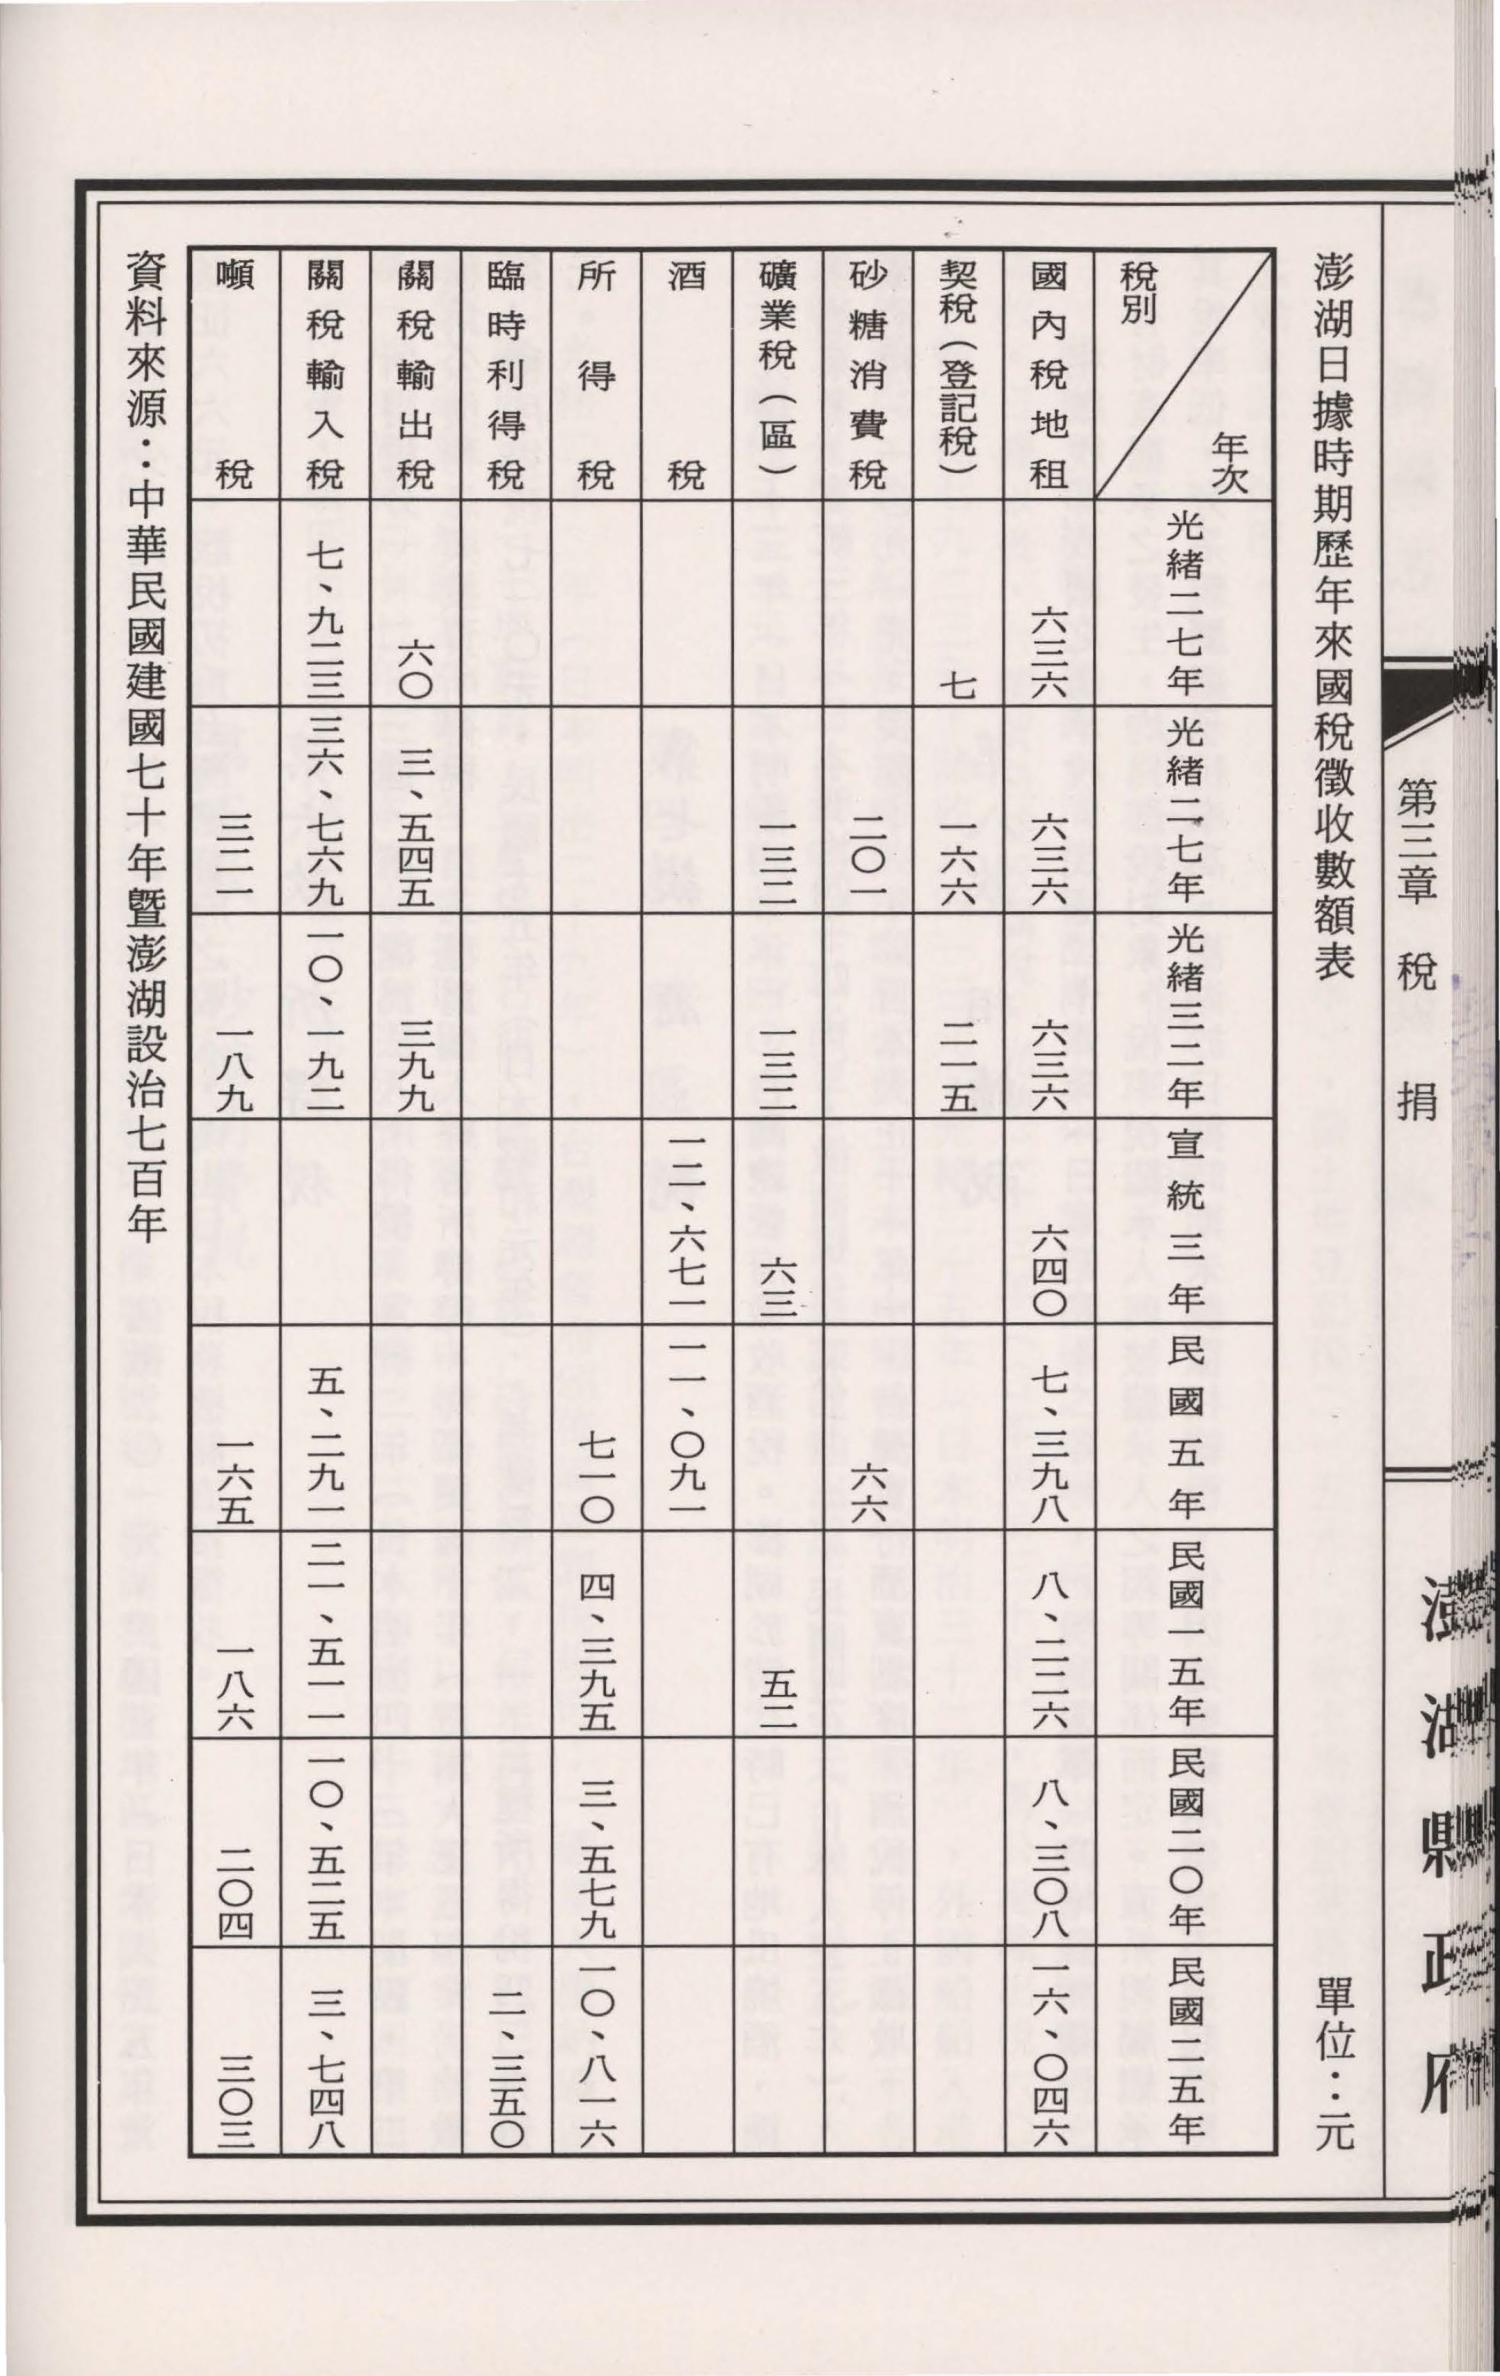 澎湖縣政府
第三章　稅　捐
澎湖日據時期歷年來國稅徵收數額表　單位：元
稅別　年次　光緒二七年　光緒二七年　光緒三二年　宣統三年　民國五年　民國一五年　民國二〇年　民國二五年
國內稅地租　六三六　六三六　六三六　六四〇　七、三九八　八、二二六　八、三〇八　一六、〇四六
契稅（登記稅）　七　一六六　二一五
砂糖消費稅　二〇一　六六
礦業稅（區）　一三二　一三二　六三　五二
酒稅　一二、六七一　一一、〇九一
所得稅　七一〇　四、三九五　三、五七九　一〇、八一六
臨時利得稅　二、三五〇
關稅輸出稅　六〇　三、五四五　三九九
關稅輸入稅　七、九二三　三六、七六九　一〇、一九二　五、二九一　二一、五一一　一〇、五二五　三、七四八
噸稅　三二一　一八九　一六五　一八六　二〇四　三〇三
資料來源：中華民國建國七十年暨澎湖設治七百年